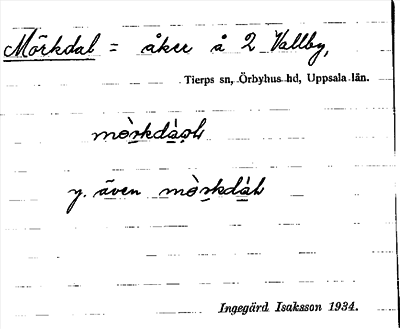 Mörkdal = åker å 2 Vallby,
Tierps sn, Örbyhus hd, Uppsala län.
mö̀rkdàɒḷ
y. även mö̀rkdàḷ
Ingegärd Isaksson 1934.